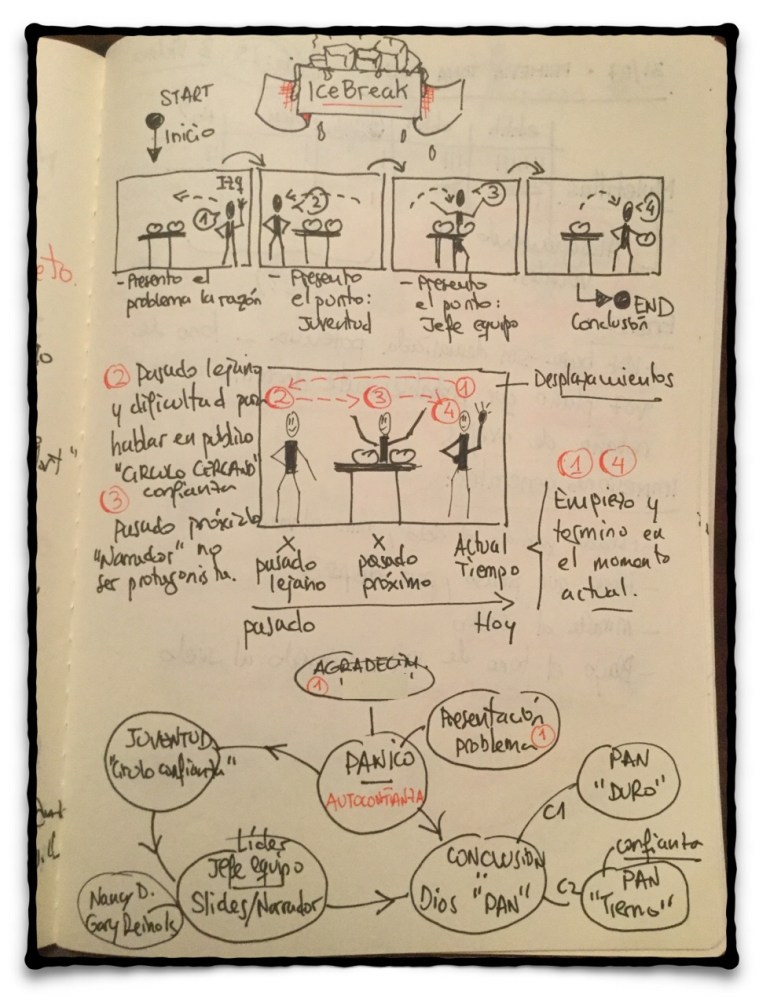 IceBreak
START
Inicio
Izq
1
2
3
4
- Presento el
problema la razón
- Presento
el punto:
Juventud
- Presento
el punto:
Jefe equipo
END
Conclusión
2 Pasado lejano
y dificultad para
hablar en público
"CIRCULO CERCANO"
confianza
3
Pasado próximo
"Narrador" no
ser protagonista.
1
2
3
4
Desplazamientos
X
pasado
lejano
X
pasado
próximo
Actual
Tiempo
pasado
Hoy
1 4
Empiezo y
termino en
el momento
actual.
AGRADECIM.
1
Presentación
problema 1
JUVENTUD
"Circulo confianza"
PANICO
AUTOCONFIANZA
PAN
"DURO"
C1
Líder
Jefe equipo
Slides/Narrador
Nancy D.
Gary Reinols
CONCLUSION
Dios "PAN"
C2
confianza
PAN
"Tierno"